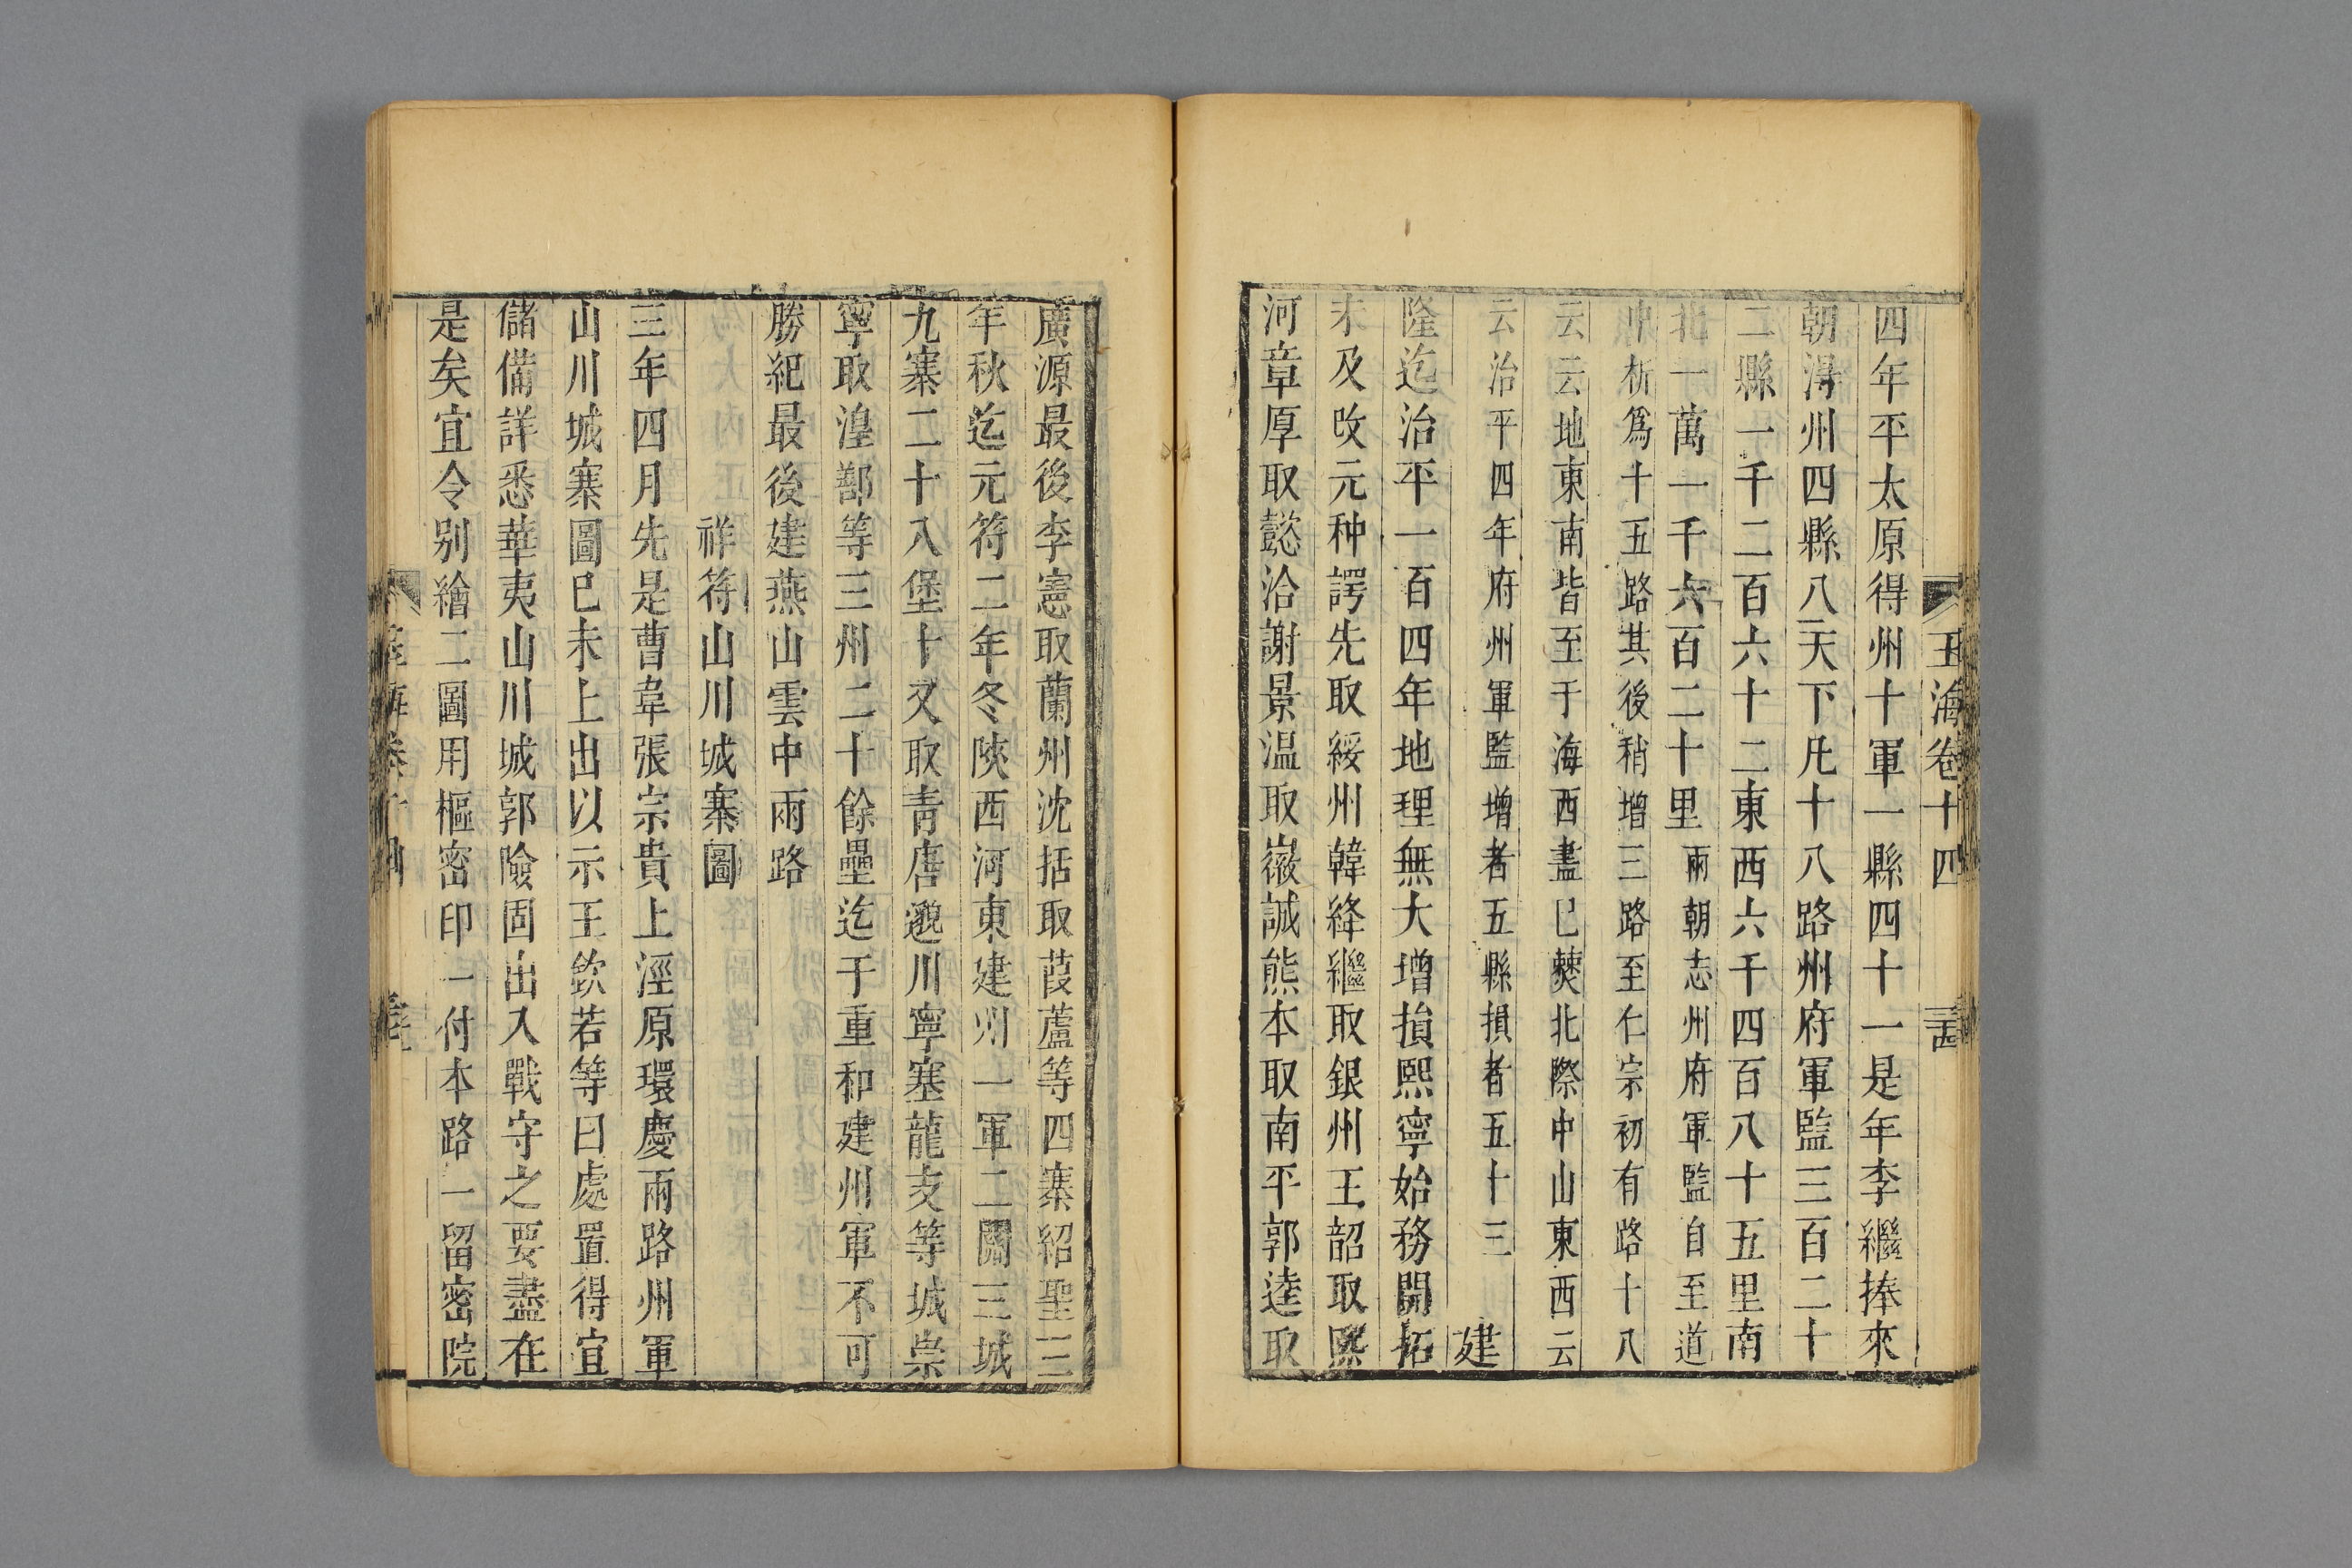 玉海卷十四
四年平太原得州十軍一縣四十一是年李繼捧來
朝得州四縣八天下凡十八路州府軍監三百二十
二縣一千二百六十二東西六千四百八十五里南
北一萬一千六百二十里兩朝志州府軍監自至道
中析爲十五路其後稍增三路至仁宗初有路十八
云云地東南皆至于海西盡巴僰北際中山東西云
云治平四年府州軍監增者五縣損者五十三 建
隆迄治平一百四年地理無大增損熙寧始務開拓
未及改元种諤先取綏州韓絳繼取銀州王韶取熙
河章厚取懿洽謝景温取徽誠熊本取南平郭逵取
廣源最後李憲取蘭州沈括取葭蘆等四寨紹聖三
年秋迄元符二年冬陝西河東建州一軍二關三城
九寨二十八堡十又取青唐邈川寧塞龍支等城崇
寧取湟鄯等三州二十餘壘迄于重和建州軍不可
勝紀最後建燕山雲中兩路
祥符山川城寨圖
三年四月先是曹韋張宗貴上涇原環慶兩路州軍
山川城寨圖巳未上出以示王欽若等曰處置得宜
儲備詳悉華夷山川城郭險固出入戰守之要盡在
是矣宜令别繪二圖用樞密印一付本路一留密院